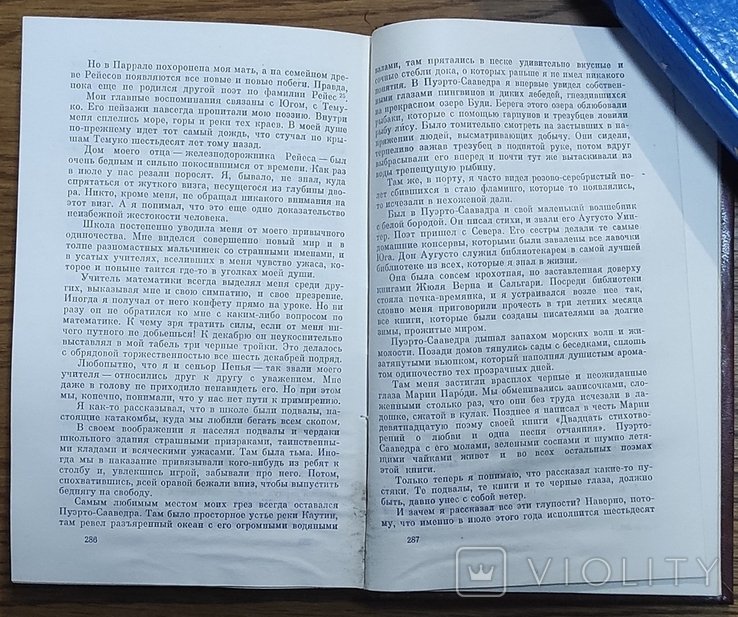 Но в Паррале похоронена моя мать, а на семейном дре-
ве Рейесов появляются все новые и новые побеги. Правда,
пока еще не родился другой поэт по фамилии Рейес
Мои главные воспоминания связаны с Югом, с Тему-
ко. Его пейзажи навсегда пропитали мою поэзию. Внутри
меня сплелись море, горы и реки тех краев. В моей душе
по-прежнему идет тот самый дождь, что стучал по кры-
шам Темуко шестьдесят лет тому назад.
Дом моего отца — железнодорожника Рейеса — был
очень бедным и сильно покосившимся от времени. Как раз
в июле у нас резали поросят. Я, бывало, не знал, куда
спрятаться от жуткого визга, несущегося из глубины дво-
ра. Никто, кроме меня, не обращал никакого внимания на
этот визг. А я понимал, что это еще одно доказательство
неизбежной жестокости человека.
Школа постепенно уводила меня от моего привычного
одиночества. Мне виделся совершенно новый мир и в
толпе разномастных мальчишек со странными именами, и
в усатых учителях, вселивших в меня чувство ужаса, ко-
торое и поныне таится где-то в уголках моей души.
Учитель математики всегда выделял меня среди дру-
гих, выказывая мне и свою симпатию, и свое презрение.
Иногда я получал от него конфету прямо на уроке. Но ни
разу он не обратился ко мне с каким-либо вопросом по
математике. К чему зря тратить силы, если от меня ни-
чего путного не добьешься! К декабрю он неукоснительно
выставлял в мой табель три черные тройки. Это делалось
с обрядовой торжественностью все шесть декабрей подряд.
Любопытно, что я и сеньор Пенья — так звали моего
учителя — относились друг к другу с уважением. Мне
даже в голову не приходило ненавидеть его. Но при этом
мы, конечно, понимали, что у нас нет пути к примирению.
Я как-то рассказывал, что в школе были подвалы, на-
стоящие катакомбы, куда мы любили бегать всем скопом.
В своем воображении я населял подвалы и чердаки
школьного здания страшными призраками, таинственны-
ми кладами и всяческими ужасами. Там была тьма. Ино-
гда мы в наказание привязывали кого-нибудь из ребят к
столбу и, увлекшись игрой, забывали про него. Потом,
спохватившись, всей оравой бежали вниз, чтобы выпустить
беднягу на свободу.
Самым любимым местом моих грез всегда оставался
Пуэрто-Сааведра. Там было просторное устье реки Каутин,
там ревел разъяренный океан с его огромными водяными
286
валами, там прятались в песке удивительно вкусные и
сочные стебли дока, о которых раньше я не имел никакого
понятия. В Пуэрто-Сааведра я впервые увидел собствен-
ными глазами пингвинов и диких лебедей, гнездившихся
на прекрасном озере Буди. Берега этого озера облюбовали
рыбаки, которые с помощью гарпунов и трезубцев ловили
рыбу лису. Было томительно смотреть на застывших в на-
пряжении людей, высматривающих добычу. Они сидели,
терпеливо зажав трезубец в поднятой руке, потом вдруг
выбрасывали его вперед и почти тут же вытаскивали из
воды трепещущую рыбину.
Там же, в порту, я часто видел розово-серебристый по-
лет сбившихся в стаю фламинго, которые то появлялись,
то исчезали в нехоженой дали.
Был в Пуэрто-Сааведра и свой маленький волшебник
с белой бородой. Он писал стихи, и звали его Аугусто Уин-
тер. Поэт пришел с Севера. Его сестры делали те самые
домашние консервы, которыми были завалены все лавочки
Юга. Дон Аугусто служил библиотекарем в самой лучшей
библиотеке на всех, которые я знал в жизни.
Она была совсем крохотная, но заставленная доверху
книгами Жюля Верна и Сальгари. Посреди библиотеки
стояла печка-времянка, и я устраивался возле нее так,
словно меня приговорили прочесть в три летних месяца
все книги, которые были созданы писателями за долгие
зимы, прожитые миром.
Пуэрто-Сааведра дышал запахом морских волн и жи-
молости. Позади домов тянулись сады с беседками, сплошь
затянутыми вьюнком, который наполнял душистым арома-
том одиночество тех прозрачных дней.
Там меня застигли врасплох черные и неожиданные
глаза Марии Пароди. Мы обменивались записочками, сло-
женными столько раз, что они без труда исчезали в ла-
дошке, сжатой в кулак. Позднее я написал в честь Марии
девятнадцатую поэму своей книги «Двадцать стихотво-
рений о любви и одна песня отчаяния». Пуэрто-
Сааведра с его молами, зелеными соснами и шумно летя-
щими чайками живет и во всех остальных поэмах
этой книги.
Только теперь я понимаю, что рассказал какие-то пу-
стяки. Те подвалы, те книги и те черные глаза, должно
быть, давно унес с собой ветер.
И зачем я рассказал все эти глупости? Наверно, пото-
му, что именно в июле этого года исполнится шестьдесят
287
VIOLITY